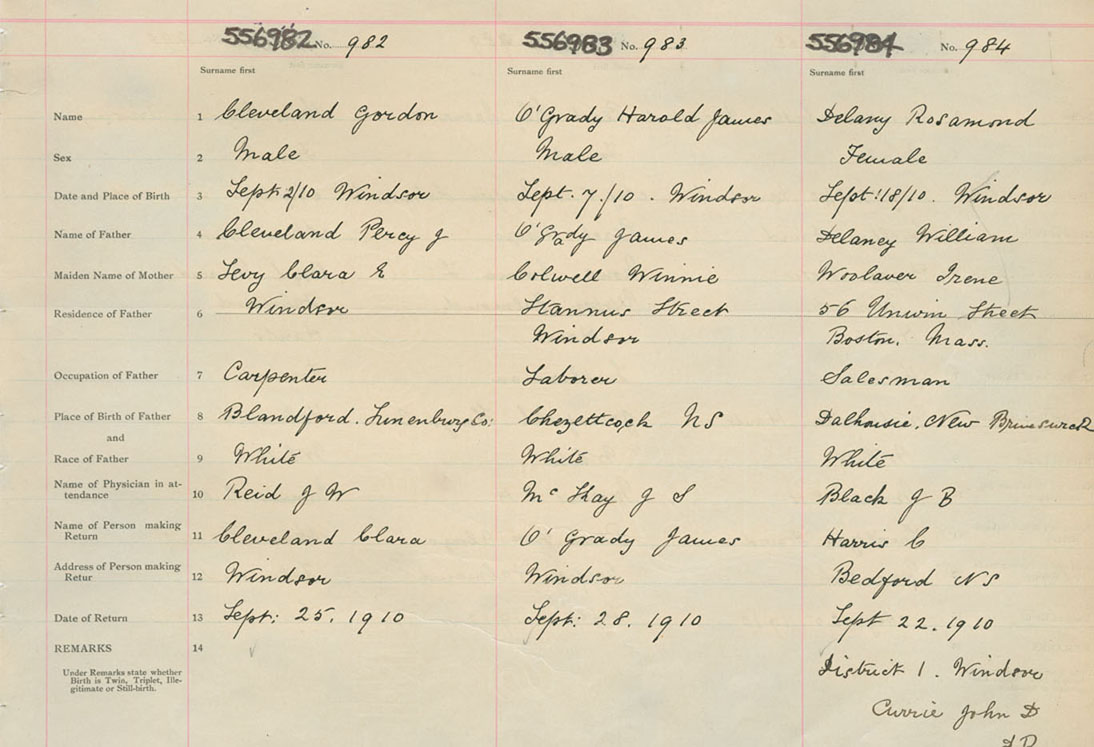 556982 No. 982 556983 No. 983 556984 No. 984
Surname first Surname first Surname first
Name 1 Cleveland Gordon O'Grady Harold James Delany Rosamond
Sex 2 Male Male Female
Date and Place of Birth 3 Sept 2/10 Windsor Sept. 7/10. Windsor Sept: 18/10. Windsor
Name of Father 4 Cleveland Percy J O'Grady James Delaney William
Maiden Name of Mother 5 Levy Clara E Colwell Winnie Woolaver Irene
Residence of Father 6 Windsor Stannus Street 56 Unwin Street
Windsor Boston. Mass.
Occupation of Father 7 Carpenter Laborer Salesman
Place of Birth of Father 8 Blandford. Lunenburg Co: Chezettcock NS Dalhousie. New
and
Race of Father 9 White White White
Name of Physician in at-
tendance 10 Reid J W Mc Kay J S Black J B
Name of Person making
Return 11 Cleveland Clara O' Grady James Harris C
Address of Person making
Retur 12 Windsor Windsor Bedford NS
Date of Return 13 Sept: 25. 1910 Sept: 28. 1910 Sept 22. 1910
REMARKS 14
Under Remarks state whether
Birth is Twin, Triplet, Ille-
gitimate or Still-birth.
District 1. Windsor
Currie John D